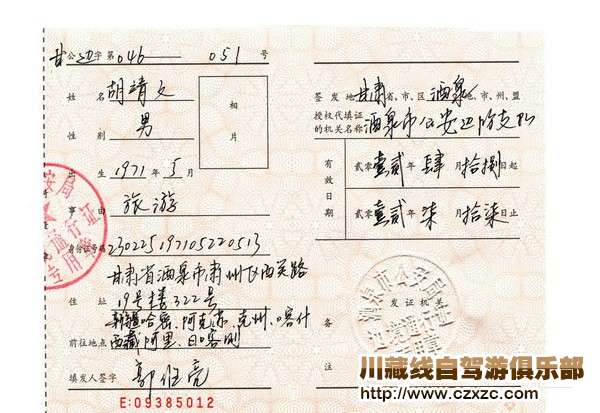 甘公边字第 046 051 号
姓名 胡靖文
相片
性别 男
出生 1971 年 5 月
事由 旅游
身份证号码 230225197105220513
甘肃省酒泉市肃州区西关路
住址 19号楼322号
新疆哈密、阿克苏、克州、喀什
前往地点 西藏阿里、日喀则
填发人签字
E:09385012
签发地 甘肃 省、市、区 酒泉 地、市、州、盟
授权代填证
的机关名称 酒泉市公安边防支队
有效日期
贰零壹贰年肆月拾捌日起
贰零壹贰年柒月拾柒日止
发证机关
备注
专用章
川藏线自驾游俱乐部
http://www.czxzc.com/